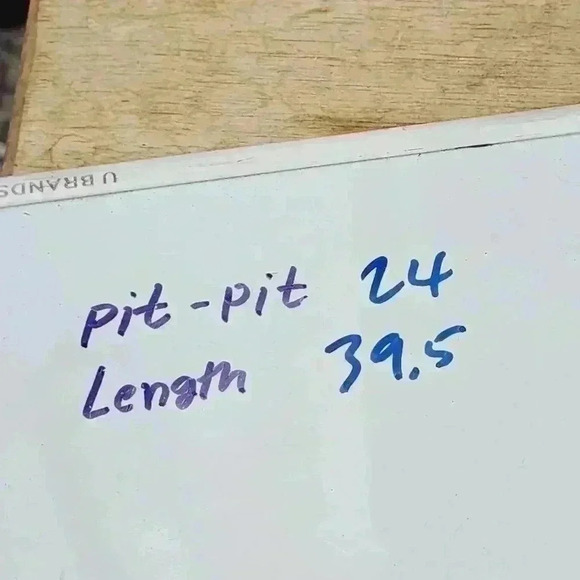 U BRANDS
pit-pit 24
Length 39.5